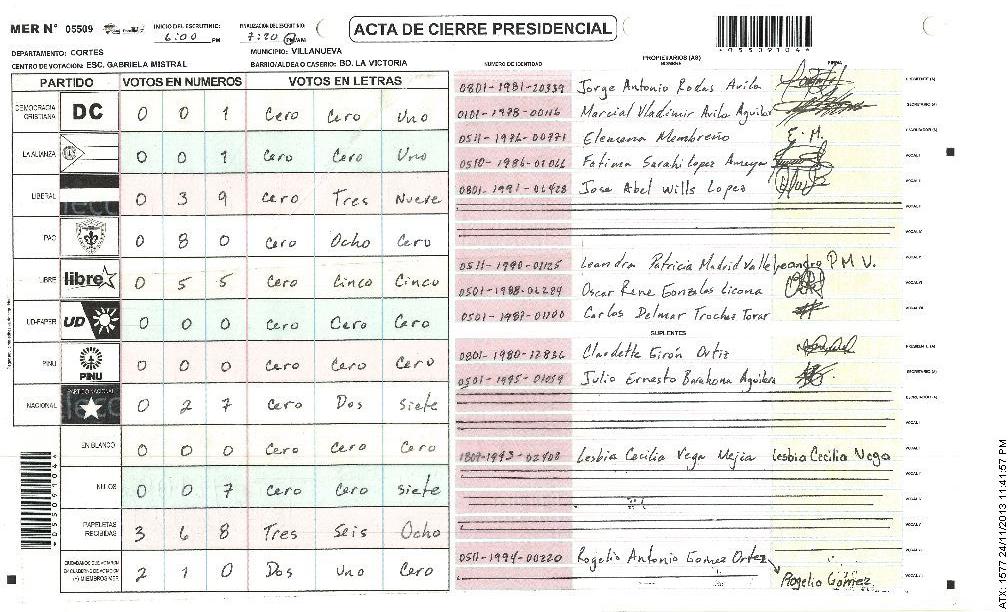 MER Nº 05509
INICIO DEL ESCRUTINIO: 6:00 PM
FINALIZACIÓN DEL ESCRUTINIO: 7:20 PM/AM
ACTA DE CIERRE PRESIDENCIAL
*05509104*
DEPARTAMENTO: CORTES
MUNICIPIO: VILLANUEVA
CENTRO DE VOTACIÓN: ESC. GABRIELA MISTRAL
BARRIO/ALDEA O CASERIO: BO. LA VICTORIA
PARTIDO VOTOS EN NUMEROS VOTOS EN LETRAS
DEMOCRACIA CRISTIANA DC 0 0 1 Cero Cero Uno
LA ALIANZA 0 0 1 Cero Cero Uno
LIBERAL 0 3 9 Cero Tres Nueve
PAC 0 8 0 Cero Ocho Cero
LIBRE libre 0 5 5 Cero Cinco Cinco
UD-FAPER UD 0 0 0 Cero Cero Cero
PINU PINU 0 0 0 Cero Cero Cero
NACIONAL PARTIDO NACIONAL 0 2 7 Cero Dos siete
EN BLANCO 0 0 0 Cero Cero Cero
NULOS 0 0 7 Cero Cero siete
PAPELETAS RECIBIDAS 3 6 8 Tres Seis Ocho
2 1 0 Dos Uno Cero
*05509104*
NÚMERO DE IDENTIDAD
PROPIETARIOS (AS)
NOMBRE
FIRMA
0801-1981-20339 Jorge Antonio Rodas Avila PRESIDENTE (A)
0101-1978-00116 Marcial Vladimir Avila Aguilar SECRETARIO (A)
0511-1976-00771 Elemana Membreño E. M. ESCRUTADOR (A)
0510-1986-01066 Fatima Sarahi Lopez Amaya VOCAL I
0801-1991-06428 Jose Abel Wills Lopez
0511-1990-01125 Leandra Patricia Madrid Valle Leandro P M V.
0501-1988-06284 Oscar Rene Gonzales Licona
0501-1987-01100 Carlos Delmar Trochez Tovar
SUPLENTES
0801-1980-12836 Claudette Girón Ortiz PRESIDENTE (A)
0501-1995-01059 Julio Ernesto Barahona Aguilera SECRETARIO (A)
ESCRUTADOR (A)
VOCAL I
1807-1993-02408 Lesbia Cecilia Vega Mejia Lesbia Cecilia Vega
0511-1994-00220 Rogelio Antonio Gomez Ortez
Rogelio Gómez
ATX: 1577 24/11/2013 11:41:57 PM